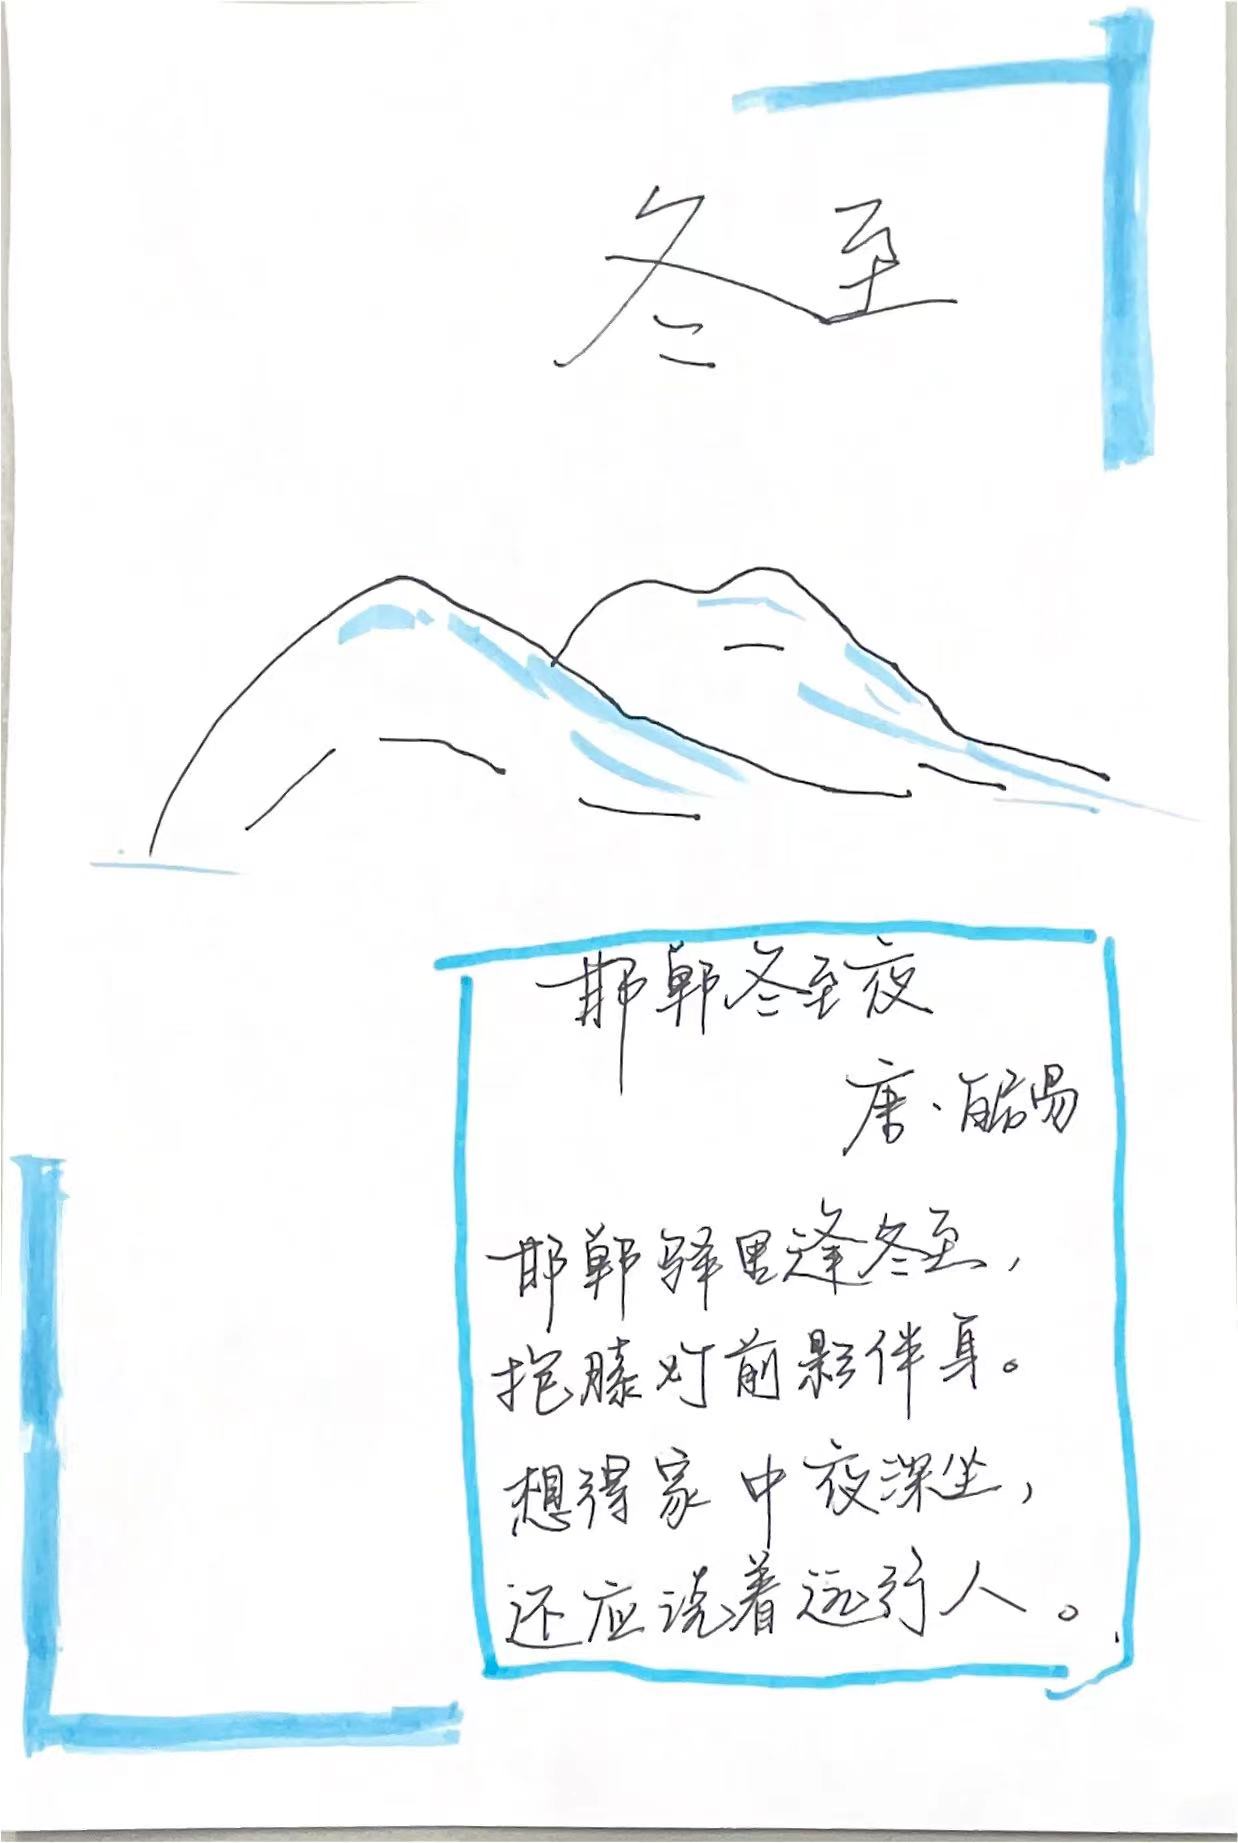 冬至
邯郸冬至夜
唐·白居易
邯郸驿里逢冬至，
抱膝灯前影伴身。
想得家中夜深坐，
还应说着远行人。